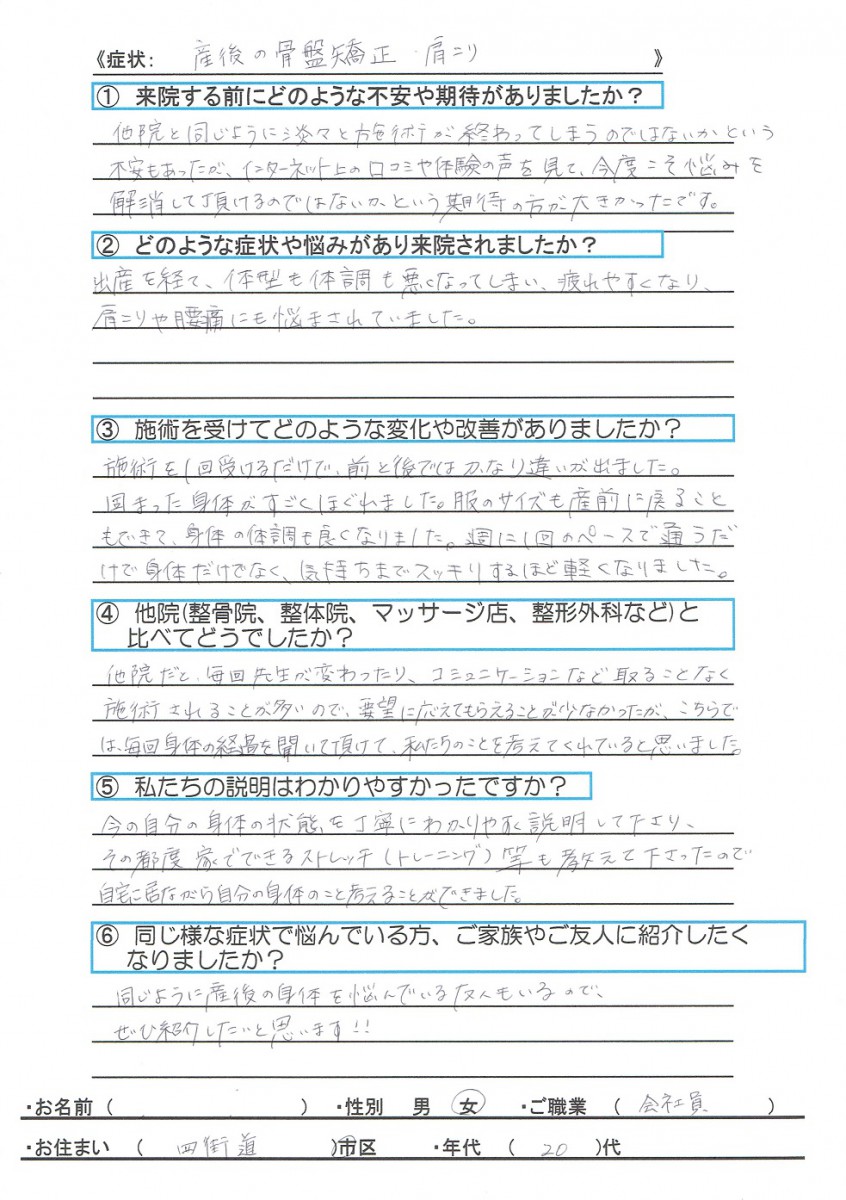 《症状: 産後の骨盤矯正・肩こり 》
① 来院する前にどのような不安や期待がありましたか？
他院と同じように淡々と施術が終わってしまうのではないかという
不安もあったが、インターネット上の口コミや体験の声を見て、今度こそ悩みを
解消して頂けるのではないかという期待の方が大きかったです。
② どのような症状や悩みがあり来院されましたか？
出産を経て、体型も体調も悪くなってしまい、疲れやすくなり、
肩こりや腰痛にも悩まされていました。
③ 施術を受けてどのような変化や改善がありましたか？
施術を1回受けるだけで、前と後ではかなり違いが出ました。
固まった身体がすごくほぐれました。服のサイズも産前に戻ること
もできて、身体の体調も良くなりました。週に1回のペースで通うだ
けで身体だけでなく、気持ちまでスッキリするほど軽くなりました。
④ 他院(整骨院、整体院、マッサージ店、整形外科など)と
比べてどうでしたか？
他院だと、毎回先生が変わったり、コミュニケーションなど取ることなく
施術されることが多いので、要望に応えてもらえることが少なかったが、こちらで
は、毎回身体の経過を聞いて頂けて、私たちのことを考えてくれていると思いました。
⑤ 私たちの説明はわかりやすかったですか？
今の自分の身体の状態を丁寧にわかりやすく説明して下さり、
その都度家でできるストレッチ(トレーニング)等も教えて下さったので
自宅に居ながら自分の身体のこと考えることができました。
⑥ 同じ様な症状で悩んでいる方、ご家族やご友人に紹介したく
なりましたか？
同じように産後の身体を悩んでいる友人もいるので、
ぜひ紹介したいと思います!!
・お名前 ( ) ・性別 男 女 ・ご職業 ( 会社員 )
・お住まい ( 四街道 )市区 ・年代 ( 20 )代